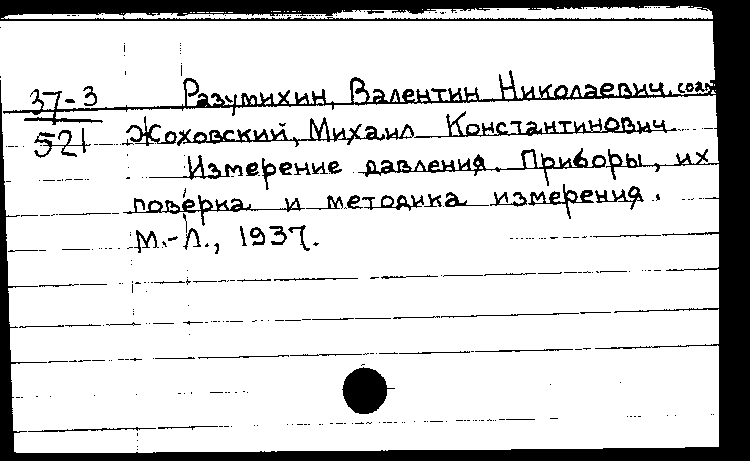 37-3 Разумихин, Валентин Николаевич. соавт
521 Жоховский, Михаил Константинович.
Измерение давления. Приборы, их
поверка и методика измерения.
М.-Л., 1937.